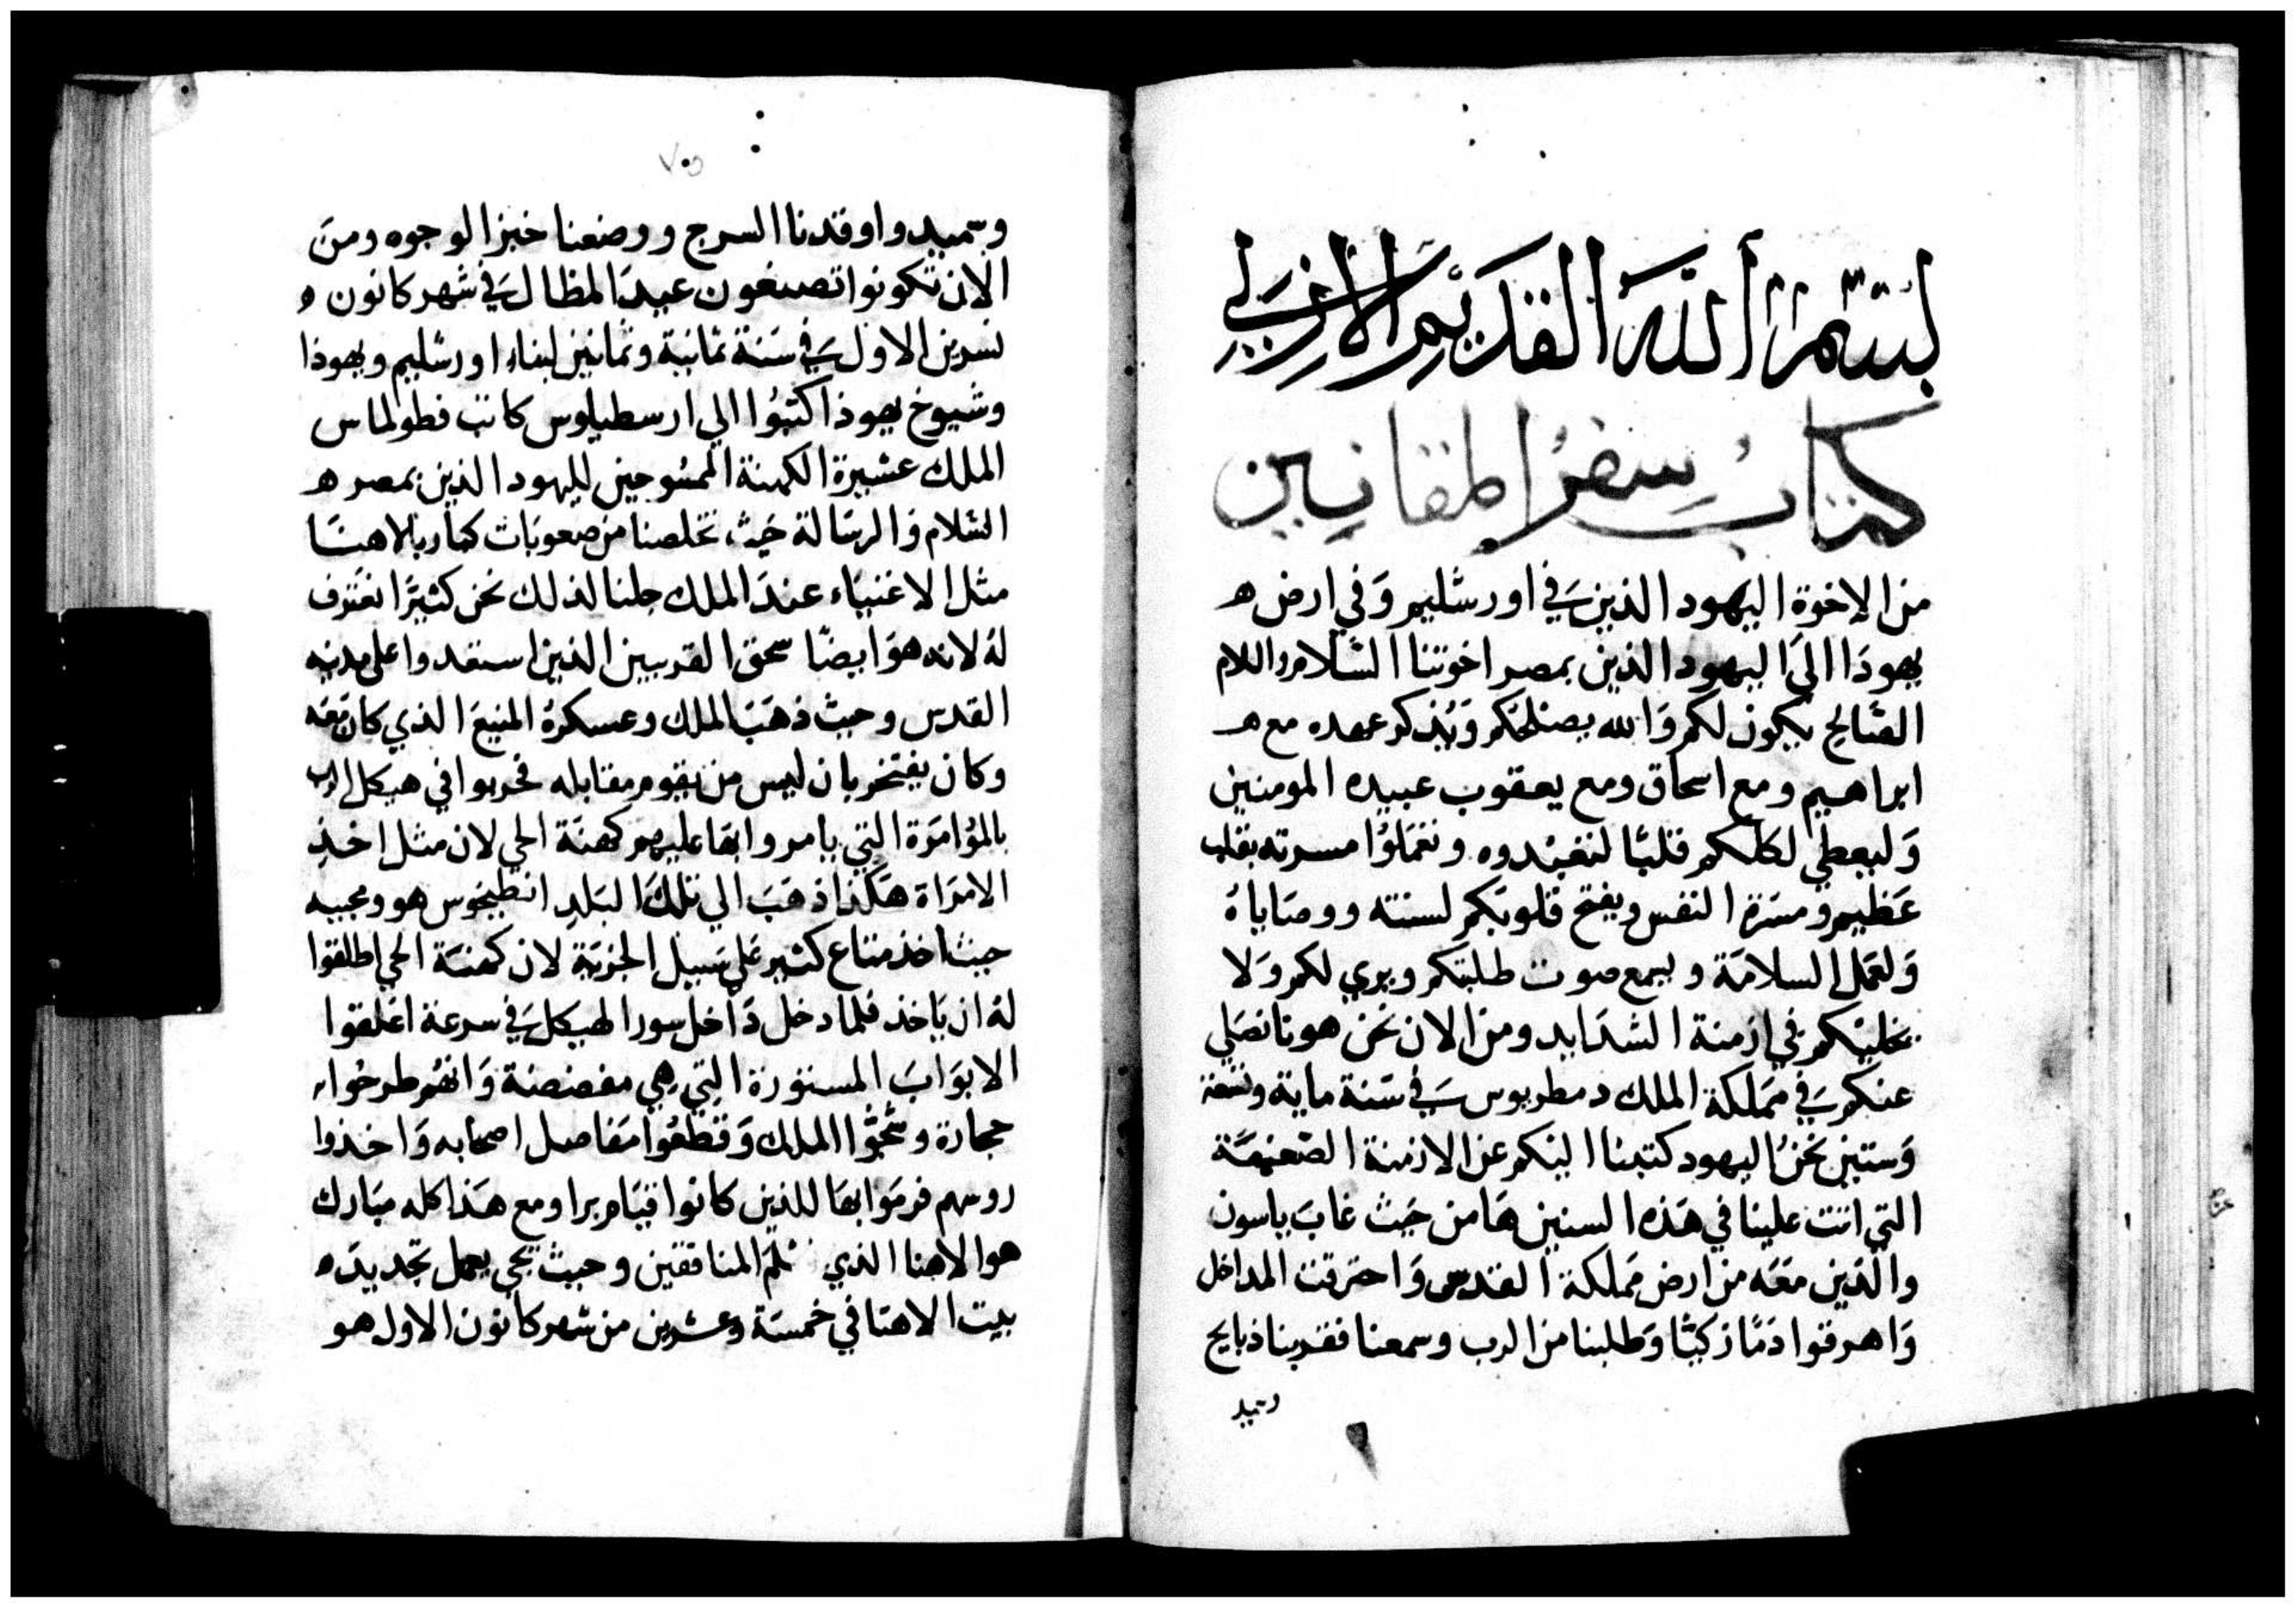 بسم الله القديم الازلي
كتاب سفر المقانيين
من الإخوة اليهود الذين في اورشليم وَفي ارض ه
يهودَا الىَ اليهود الذين بمصر اخوتنا السَّلام والسلام
الصَّالح يكون لكم وَالله يصنلحكم وَيُذكر عهده مع ه
ابراهيم ومع اسحاق ومع يعقوب عبيده المومنين
وَليعطي لكلكم قلبًا لتعبُدوه وتعمَلوُا مسرته بقلب
عَظيم ومسَرة النفس ويفتح قلوبَكم لسنته ووصَاياهُ
وَلعَمل السلامَة وليسمع صوت طلبتكم ويرىي لكم وَلا
يخليَكم في ازمنة الشدَايد ومن الان نحن هونا نصَلي
عنكم في مَملكة الملك دمطريوس في سَنة ماية وتسعة
وَستين نحنُ اليهود كتبنا اليكم عن الازمنة الصَّعبَة
التي اتت علينا في هَذه السنين هَا من حَيث غابَ ياسون
والذين مَعَه من ارض مَملكة القدس وَاحترقت المداخل
وَاهرقوا دَمًا زكيًّا وَطلبنا من الرب وسمعنا فقربنا ذبايح
وسميد
وسميد واوقدنا السرج ووضعنا خبز الوجوه ومنَ
الان تكونوا تصنعون عيدَ المظال في شهر كانون ه
تسرين الاول في سَنة ثمانية وثمانين لبناء اورشليم ويهوذا
وشيوخ يهوذا كتبُوا الي ارسطبلوس كاتب فطولماس
الملك عشيرة الكهنة الممسُوحين لليهود الذين بمصر ه
السَّلام وَالرسَالة حَيث تخلصنا من صعوبَات كبار بالاهنَا
مثل الاغنيَاء عندَ الملك جلنا لذلك نحن كثيرًا نعترف
لهُ لانه هوَ ايضًا سحق القريبين الذين استعدوا على مدينه
القدس وحيث ذهَبَ الملك وعسكرهُ المنيعَ الذي كان مَعَه
وكان يفتخر بان ليس من يقوم مقابله فحربوا في هيكل الرب
بالمؤامَرَة التي يامروا بهَا عليهم كهنَة الحي لان مثل اخذِ
الامرَاة هَكذا ذهَبَ الي تلكَ البَلدِ انطيخوس هو ومحبيه
حيث اخذ متاع كثير عَلي سَبيل الجزيَة لان كهنَة الحي اطلقوا
لهُ ان يَاخذ فلما دخل دَاخل سور الهيكل في سرعة اغلقوا
الابوَابَ المستورة التي هِي مفصصة وَانهُم طرحُوا
حجارة وشجُّوا الملك وَقطعُوا مَفاصل اصحابه وَاخذوا
روسهم فرمَوا بهَا للذين كانوا قيَام برا ومع هَذا كله مبَارك
هو الاهنا الذي سَلمَ المنافقين وحيث نجي يعمل تجديدَه
بيت الاهنَا في خمسَة وعشرين من شهر كانون الاول هو